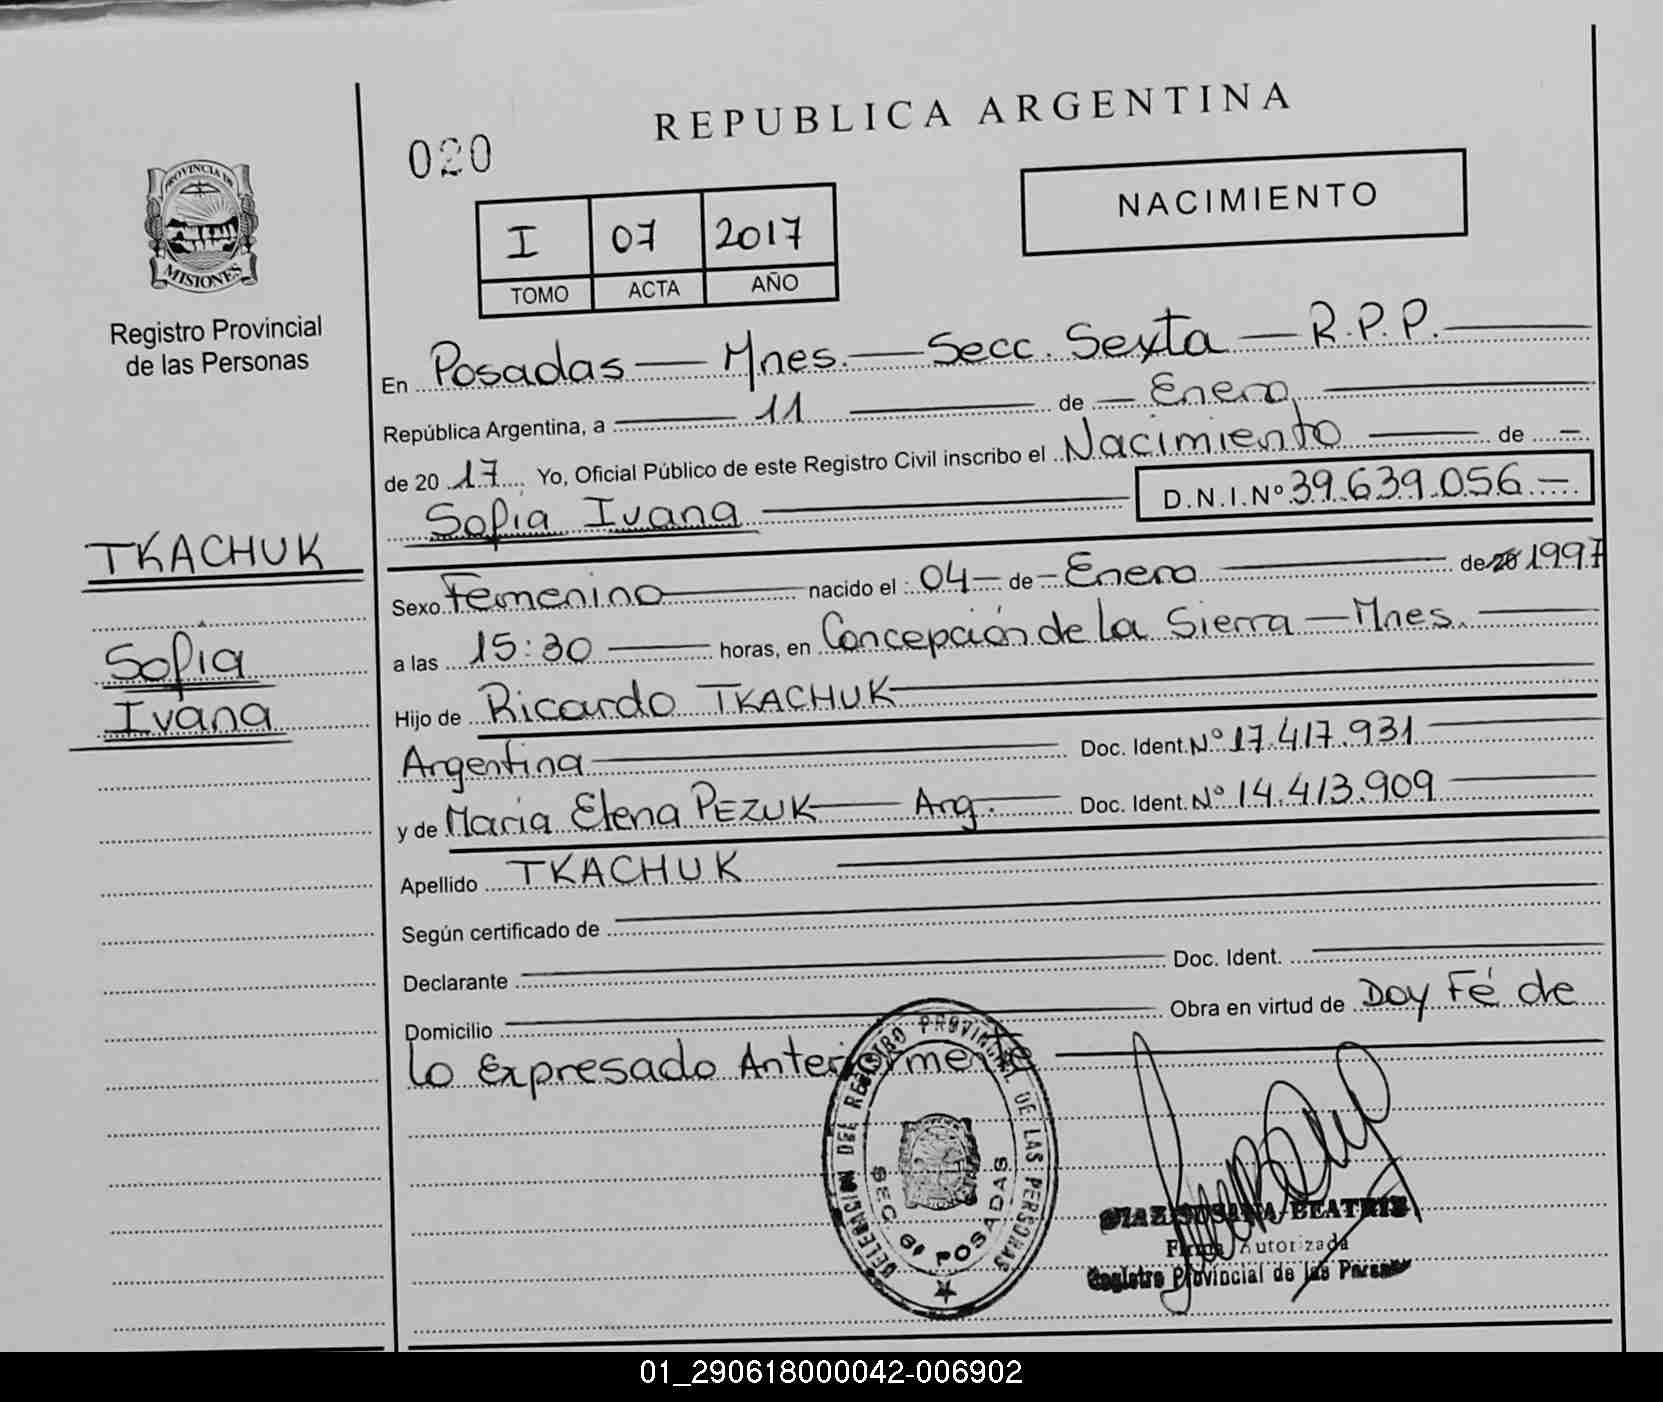 REPUBLICA ARGENTINA
020
NACIMIENTO
I 07 2017
TOMO ACTA AÑO
PROVINCIA DE
MISIONES
Registro Provincial
de las Personas
En Posadas — Mnes. — Secc. Sexta — R.P.P.
República Argentina, a 11 de Enero
de 2017 Yo, Oficial Público de este Registro Civil inscribo el Nacimiento de
Sofia Ivana D.N.I.Nº 39.639.056
TKACHUK
Sofia
Ivana
Sexo Femenino nacido el 04 de Enero de 20 1997
a las 15:30 horas, en Concepción de la Sierra — Mnes.
Hijo de Ricardo TKACHUK
Argentina Doc. Ident. Nº 17.417.931
y de Maria Elena PEZUK — Arg. Doc. Ident. Nº 14.413.909
Apellido TKACHUK
Según certificado de
Declarante Doc. Ident.
Domicilio Obra en virtud de Doy Fé de
lo Expresado Anteriormente
DELEGACION DEL REGISTRO PROVINCIAL DE LAS PERSONAS
SEC 6ª POSADAS
DIAZ SUSANA BEATRIZ
Firma Autorizada
Registro Provincial de las Personas
01_290618000042-006902